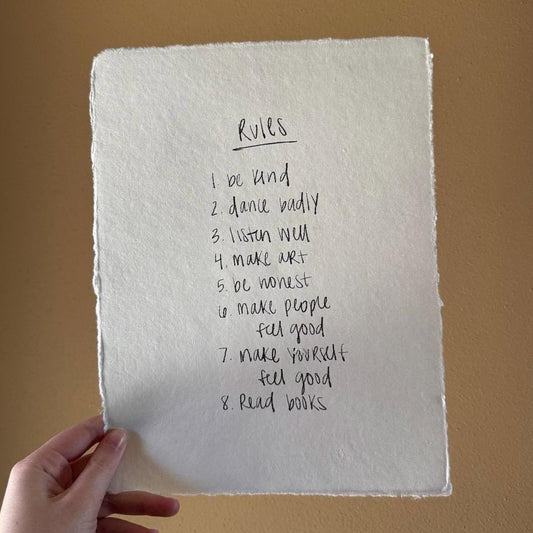 Rules
1. be kind
2. dance badly
3. listen well
4. make art
5. be honest
6. make people
feel good
7. make yourself
feel good
8. Read books